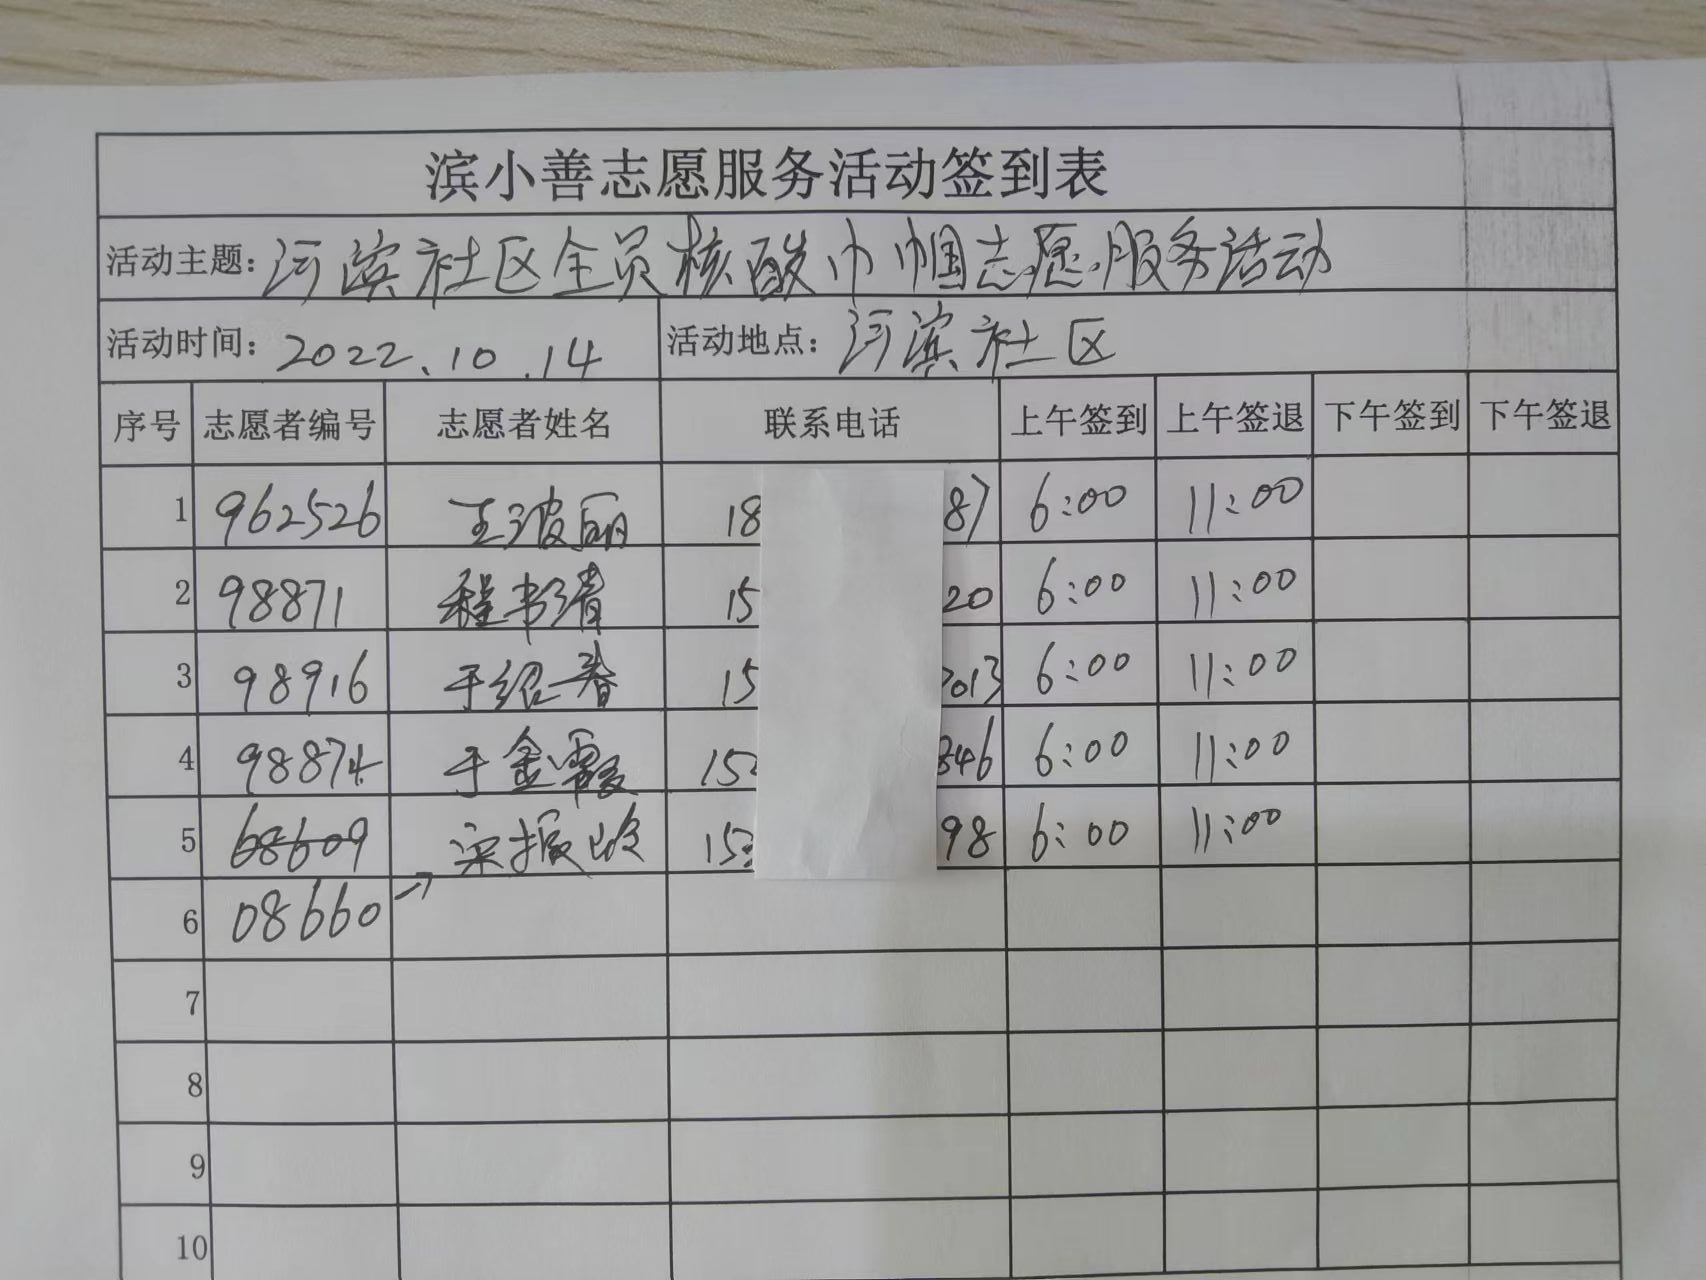 滨小善志愿服务活动签到表
活动主题: 河滨社区全员核酸巾帼志愿服务活动
活动时间: 2022.10.14 活动地点: 河滨社区
序号 志愿者编号 志愿者姓名 联系电话 上午签到 上午签退 下午签到 下午签退
1 962526 王波丽 18 87 6:00 11:00
2 98871 程书清 15 20 6:00 11:00
3 98916 于绍春 15 2013 6:00 11:00
4 98874 于金霞 152 346 6:00 11:00
5 68609 梁振收 153 98 6:00 11:00
6 08660 →
7
8
9
10